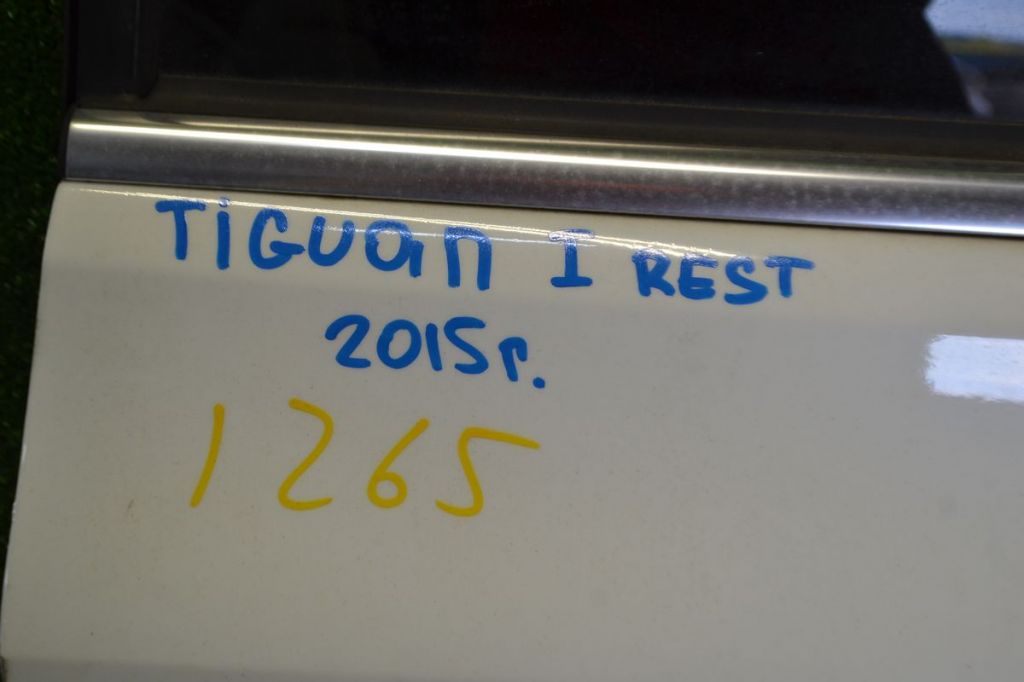 TiGUan I REST
2015г.
1265